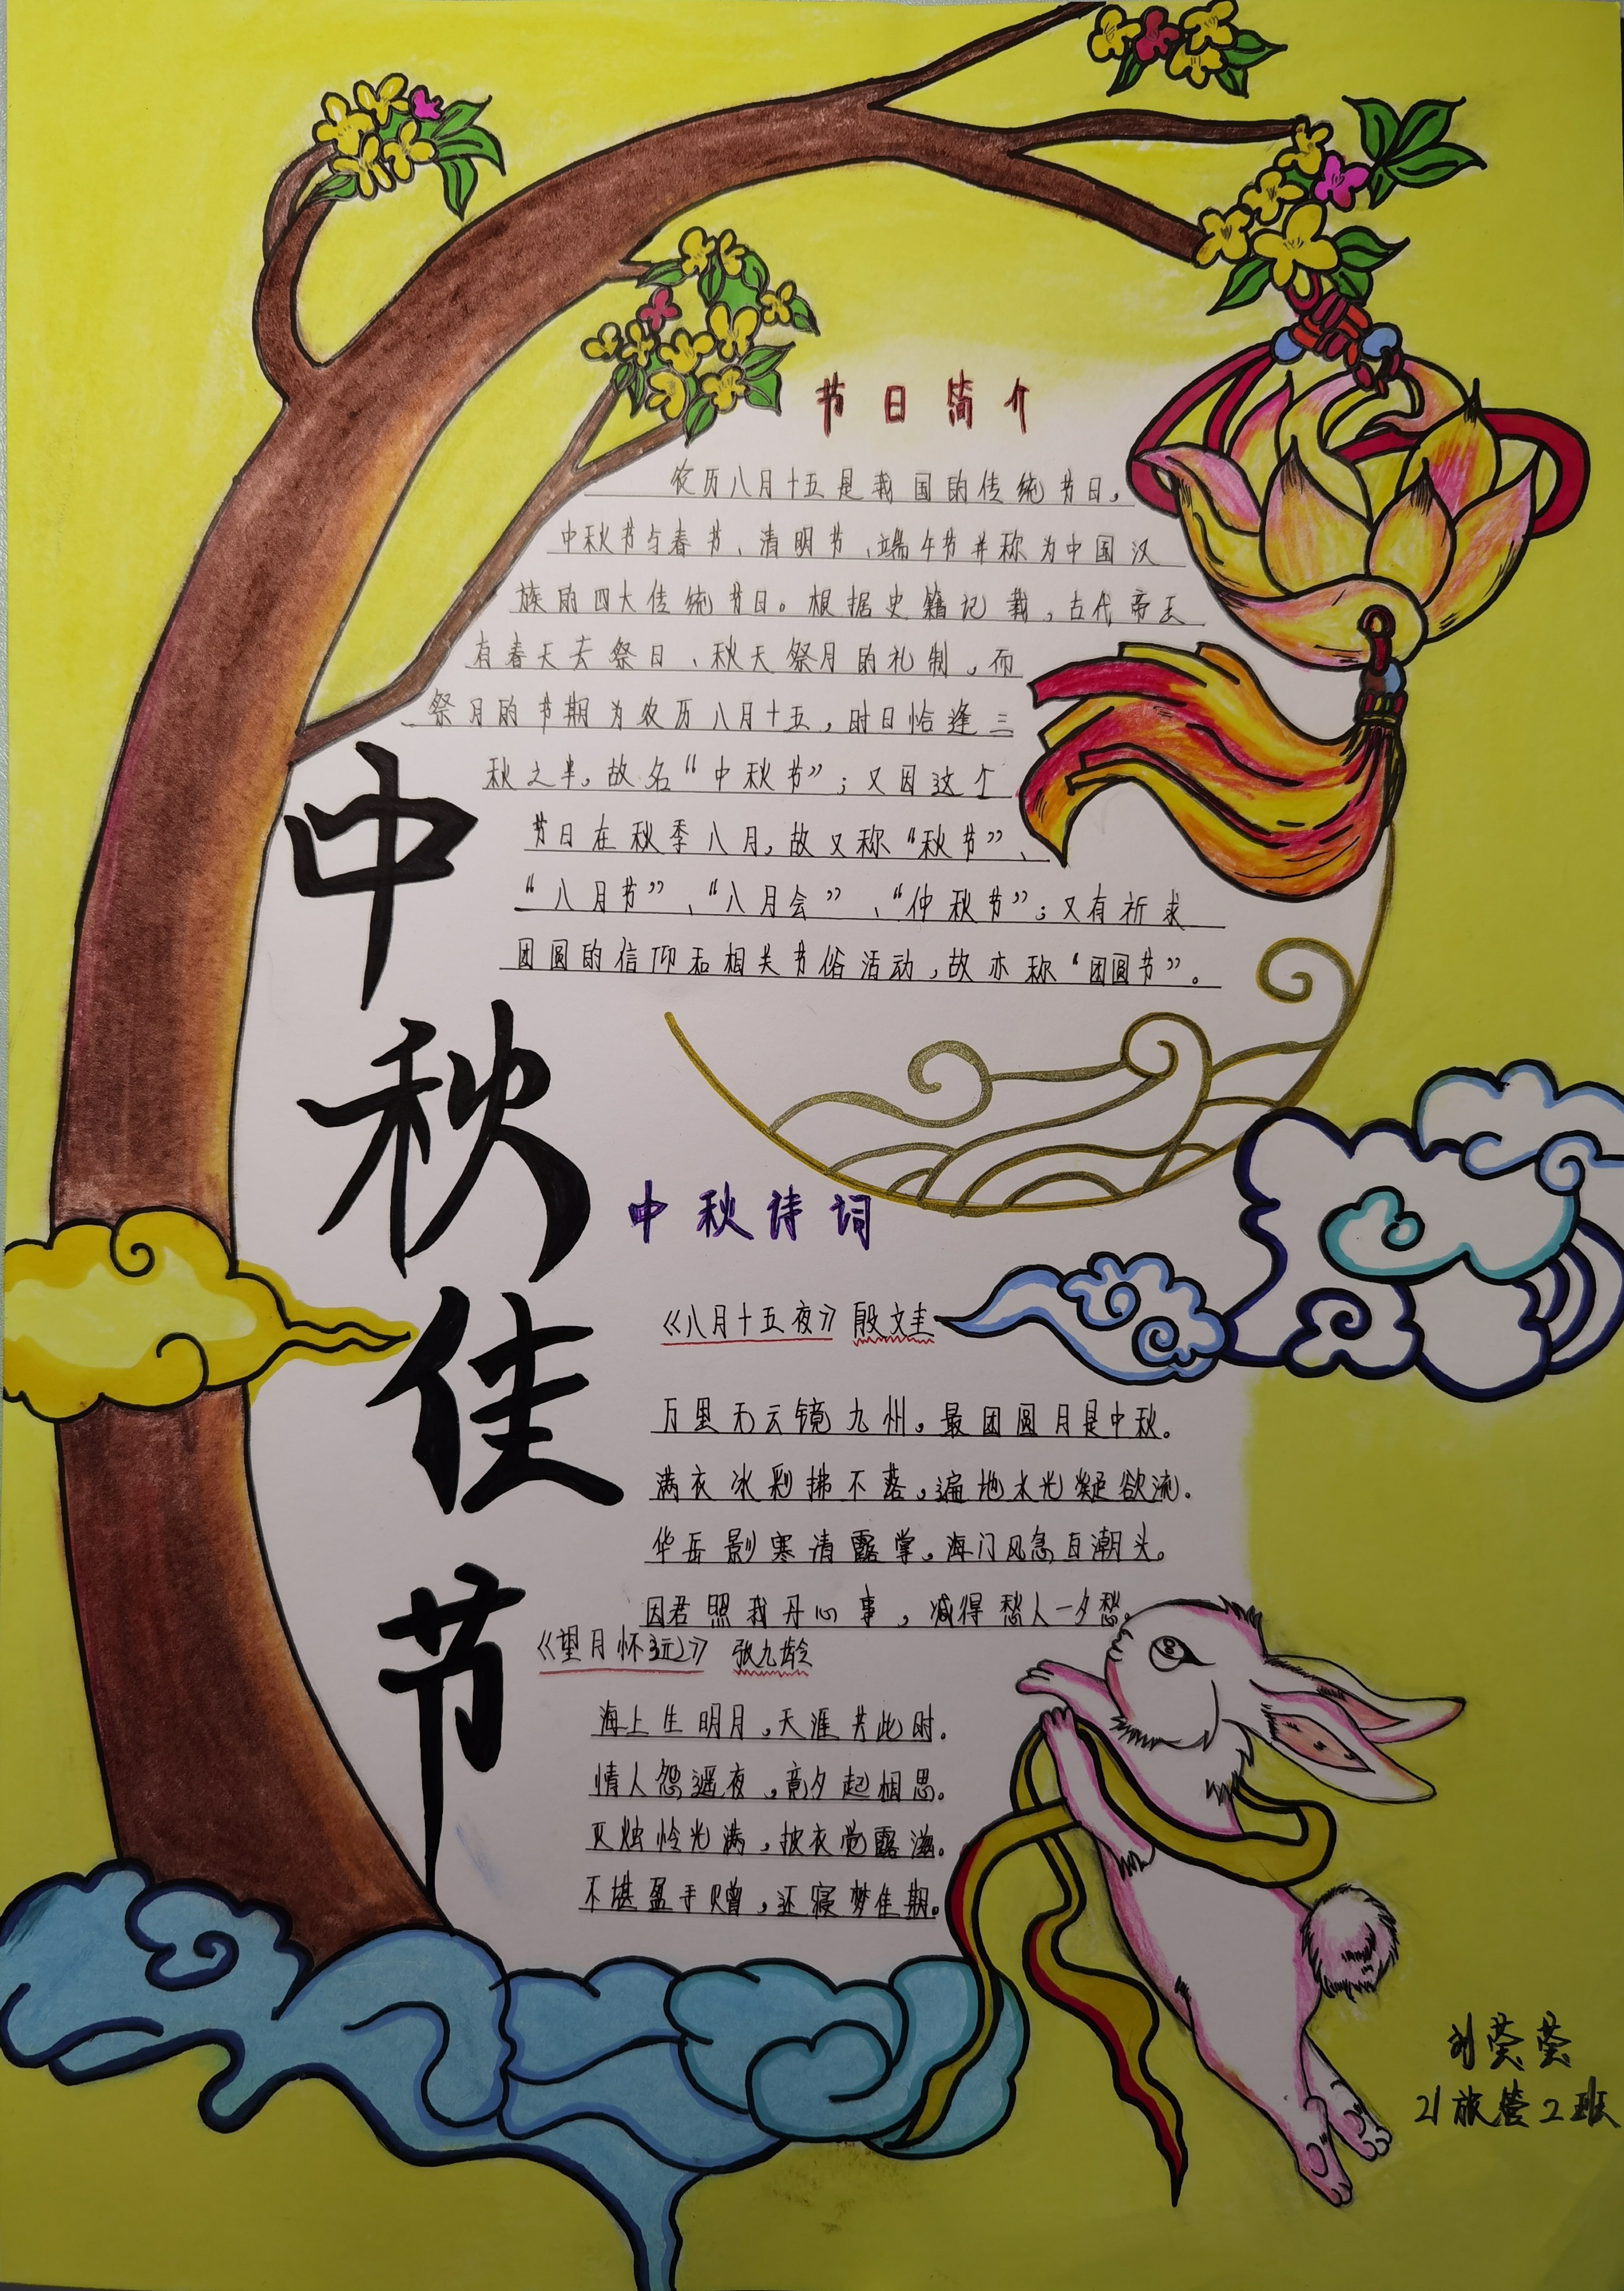 中秋佳节
节日简介
农历八月十五是我国的传统节日,
中秋节与春节、清明节、端午节并称为中国汉
族的四大传统节日。根据史籍记载,古代帝王
有春天去祭日、秋天祭月的礼制,而
祭月的节期为农历八月十五,时日恰逢三
秋之半,故名“中秋节”;又因这个
节日在秋季八月,故又称“秋节”、
“八月节”、“八月会”、“仲秋节”;又有祈求
团圆的信仰和相关节俗活动,故亦称“团圆节”。
中秋诗词
《八月十五夜》 殷文圭
万里无云镜九州,最团圆月是中秋。
满衣冰彩拂不落,遍地水光凝欲流。
华岳影寒清露掌,海门风急白潮头。
因君照我丹心事,减得愁人一夕愁。
《望月怀远》 张九龄
海上生明月,天涯共此时。
情人怨遥夜,竟夕起相思。
灭烛怜光满,披衣觉露滋。
不堪盈手赠,还寝梦佳期。
刘荧荧
21旅管2班